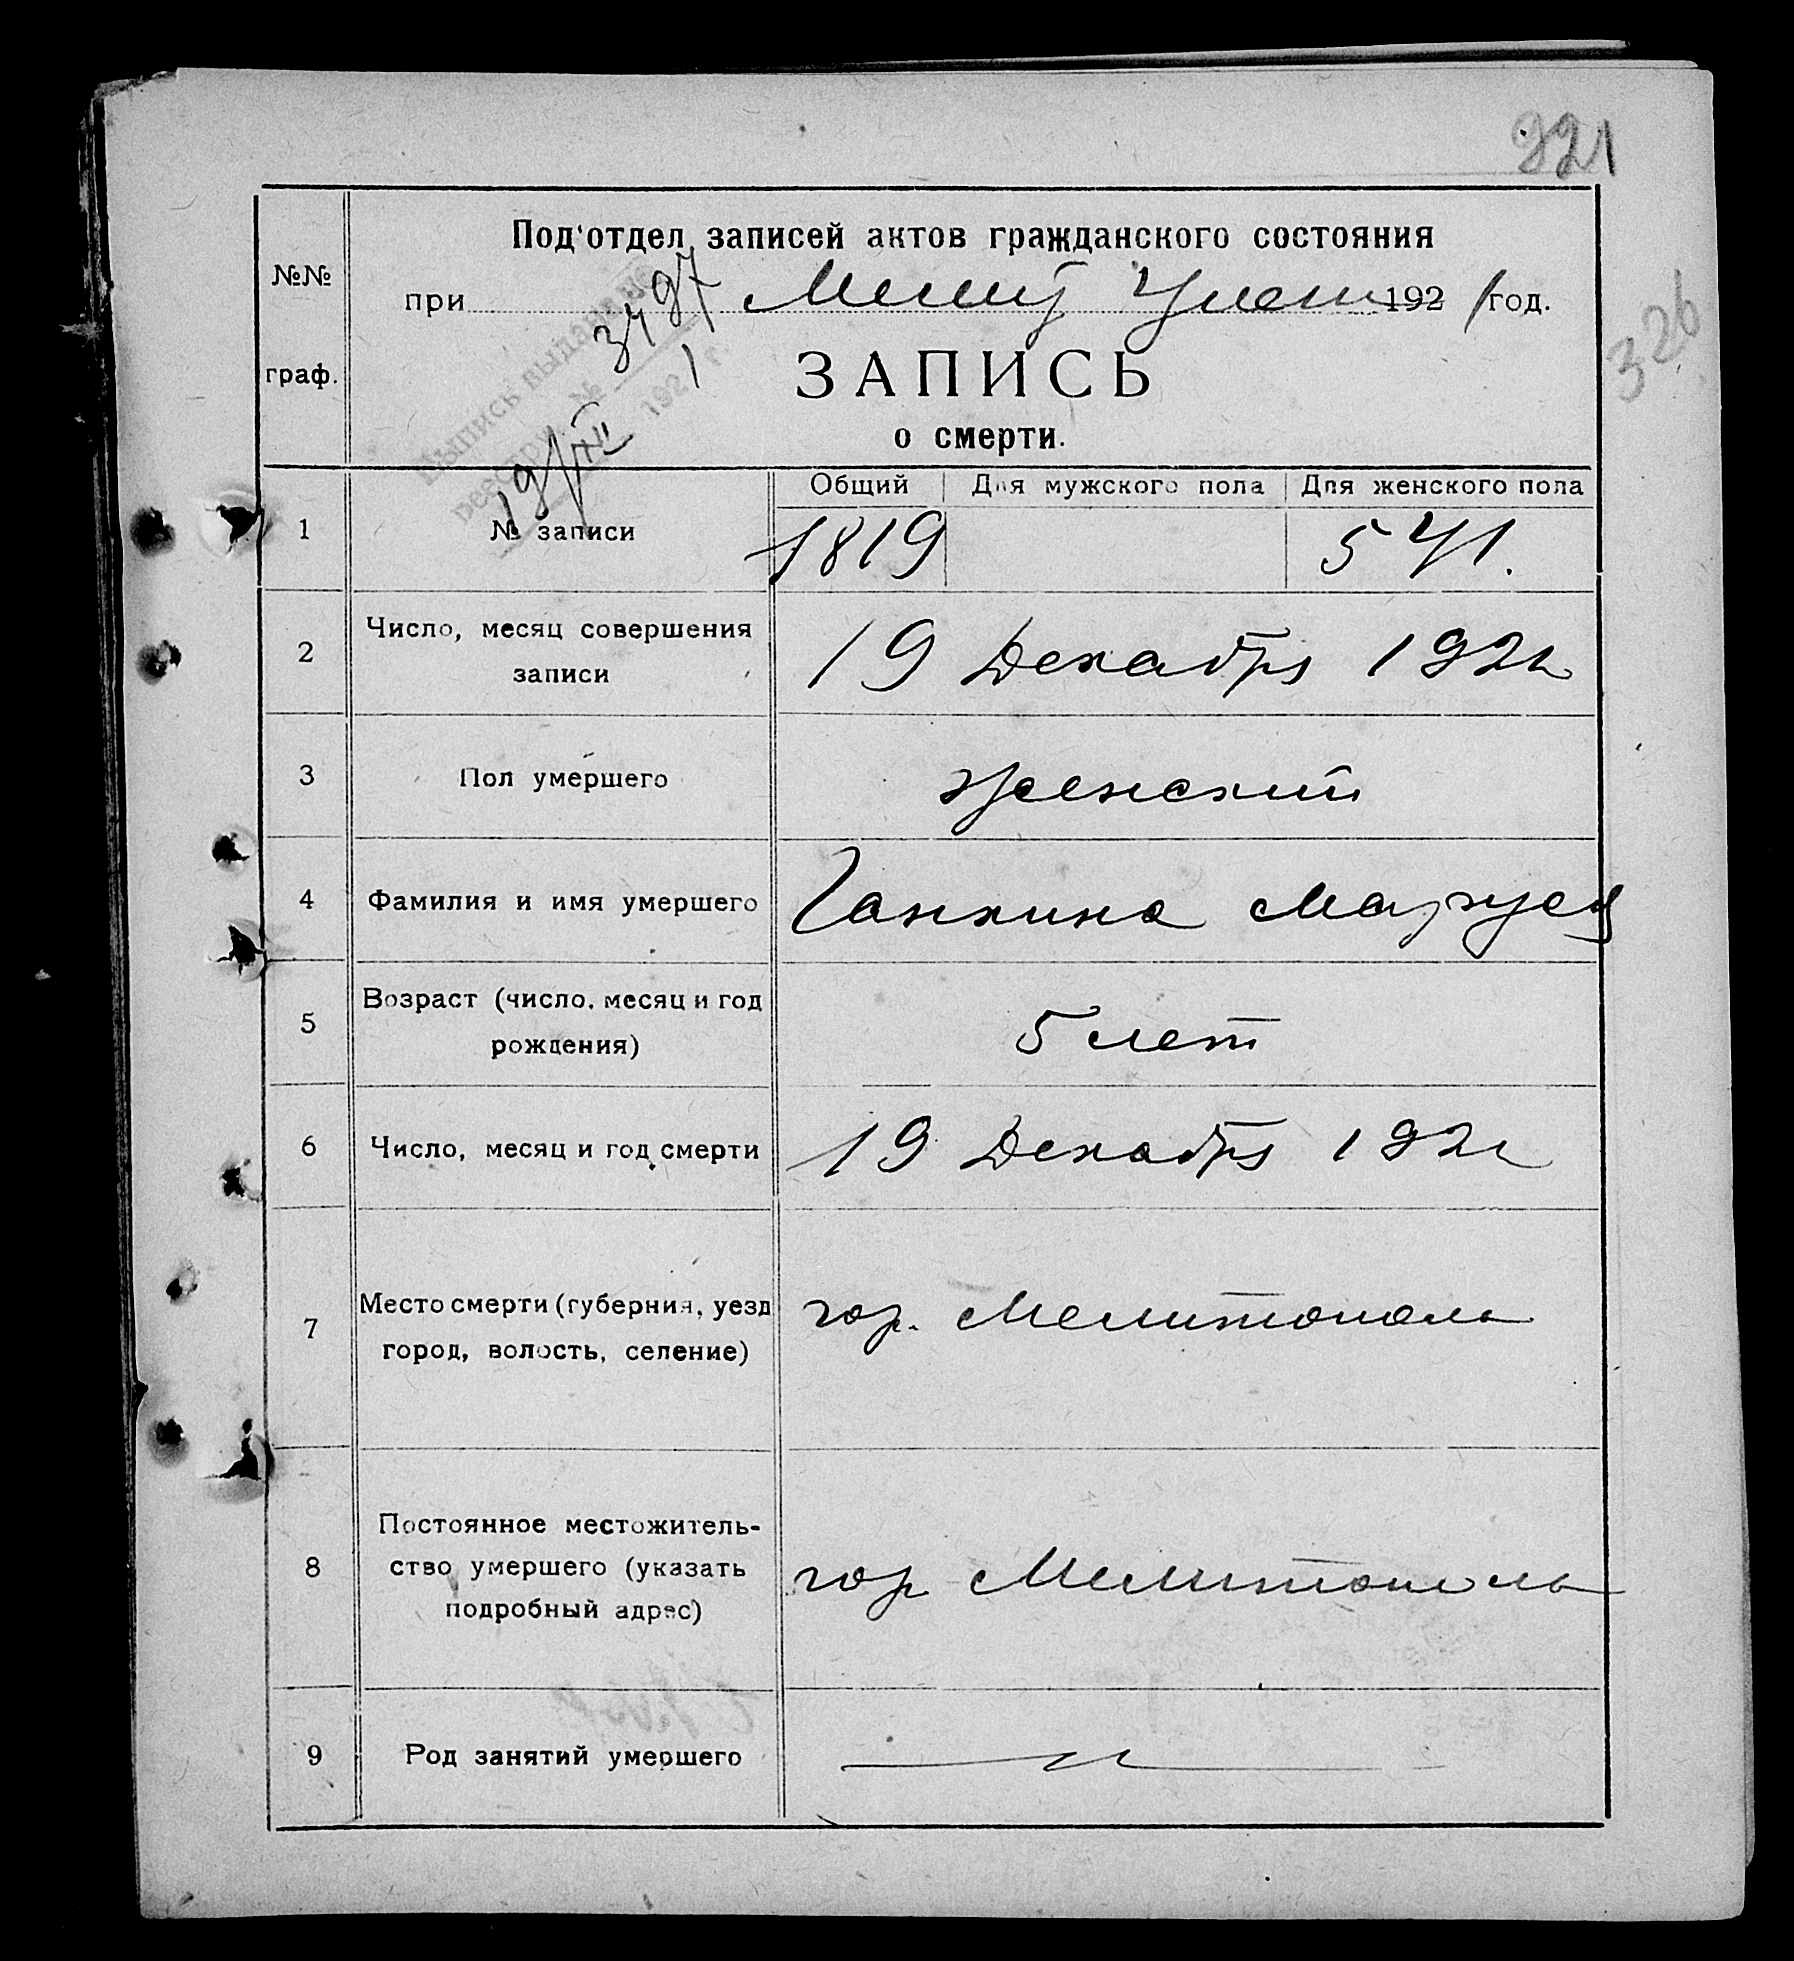 321
326
Под'отдел записей актов гражданского состояния
№№
граф.
при Мелит 1921 год.
Выпись выдана по
реестру № 3497
19/XII 1921 г.
ЗАПИСЬ
о смерти.
Общий Для мужского пола Для женского пола
1 № записи 1819 541.
2 Число, месяц совершения
записи
19 Декабря 1921
3 Пол умершего женский
4 Фамилия и имя умершего Ганкина Маруся
5 Возраст (число, месяц и год
рождения)
5 лет
6 Число, месяц и год смерти 19 Декабря 1921
7 Место смерти (губерния, уезд
город, волость, селение)
гор. Мелитополь
8 Постоянное местожитель-
ство умершего (указать
подробный адрес)
гор Мелитополь
9 Род занятий умершего